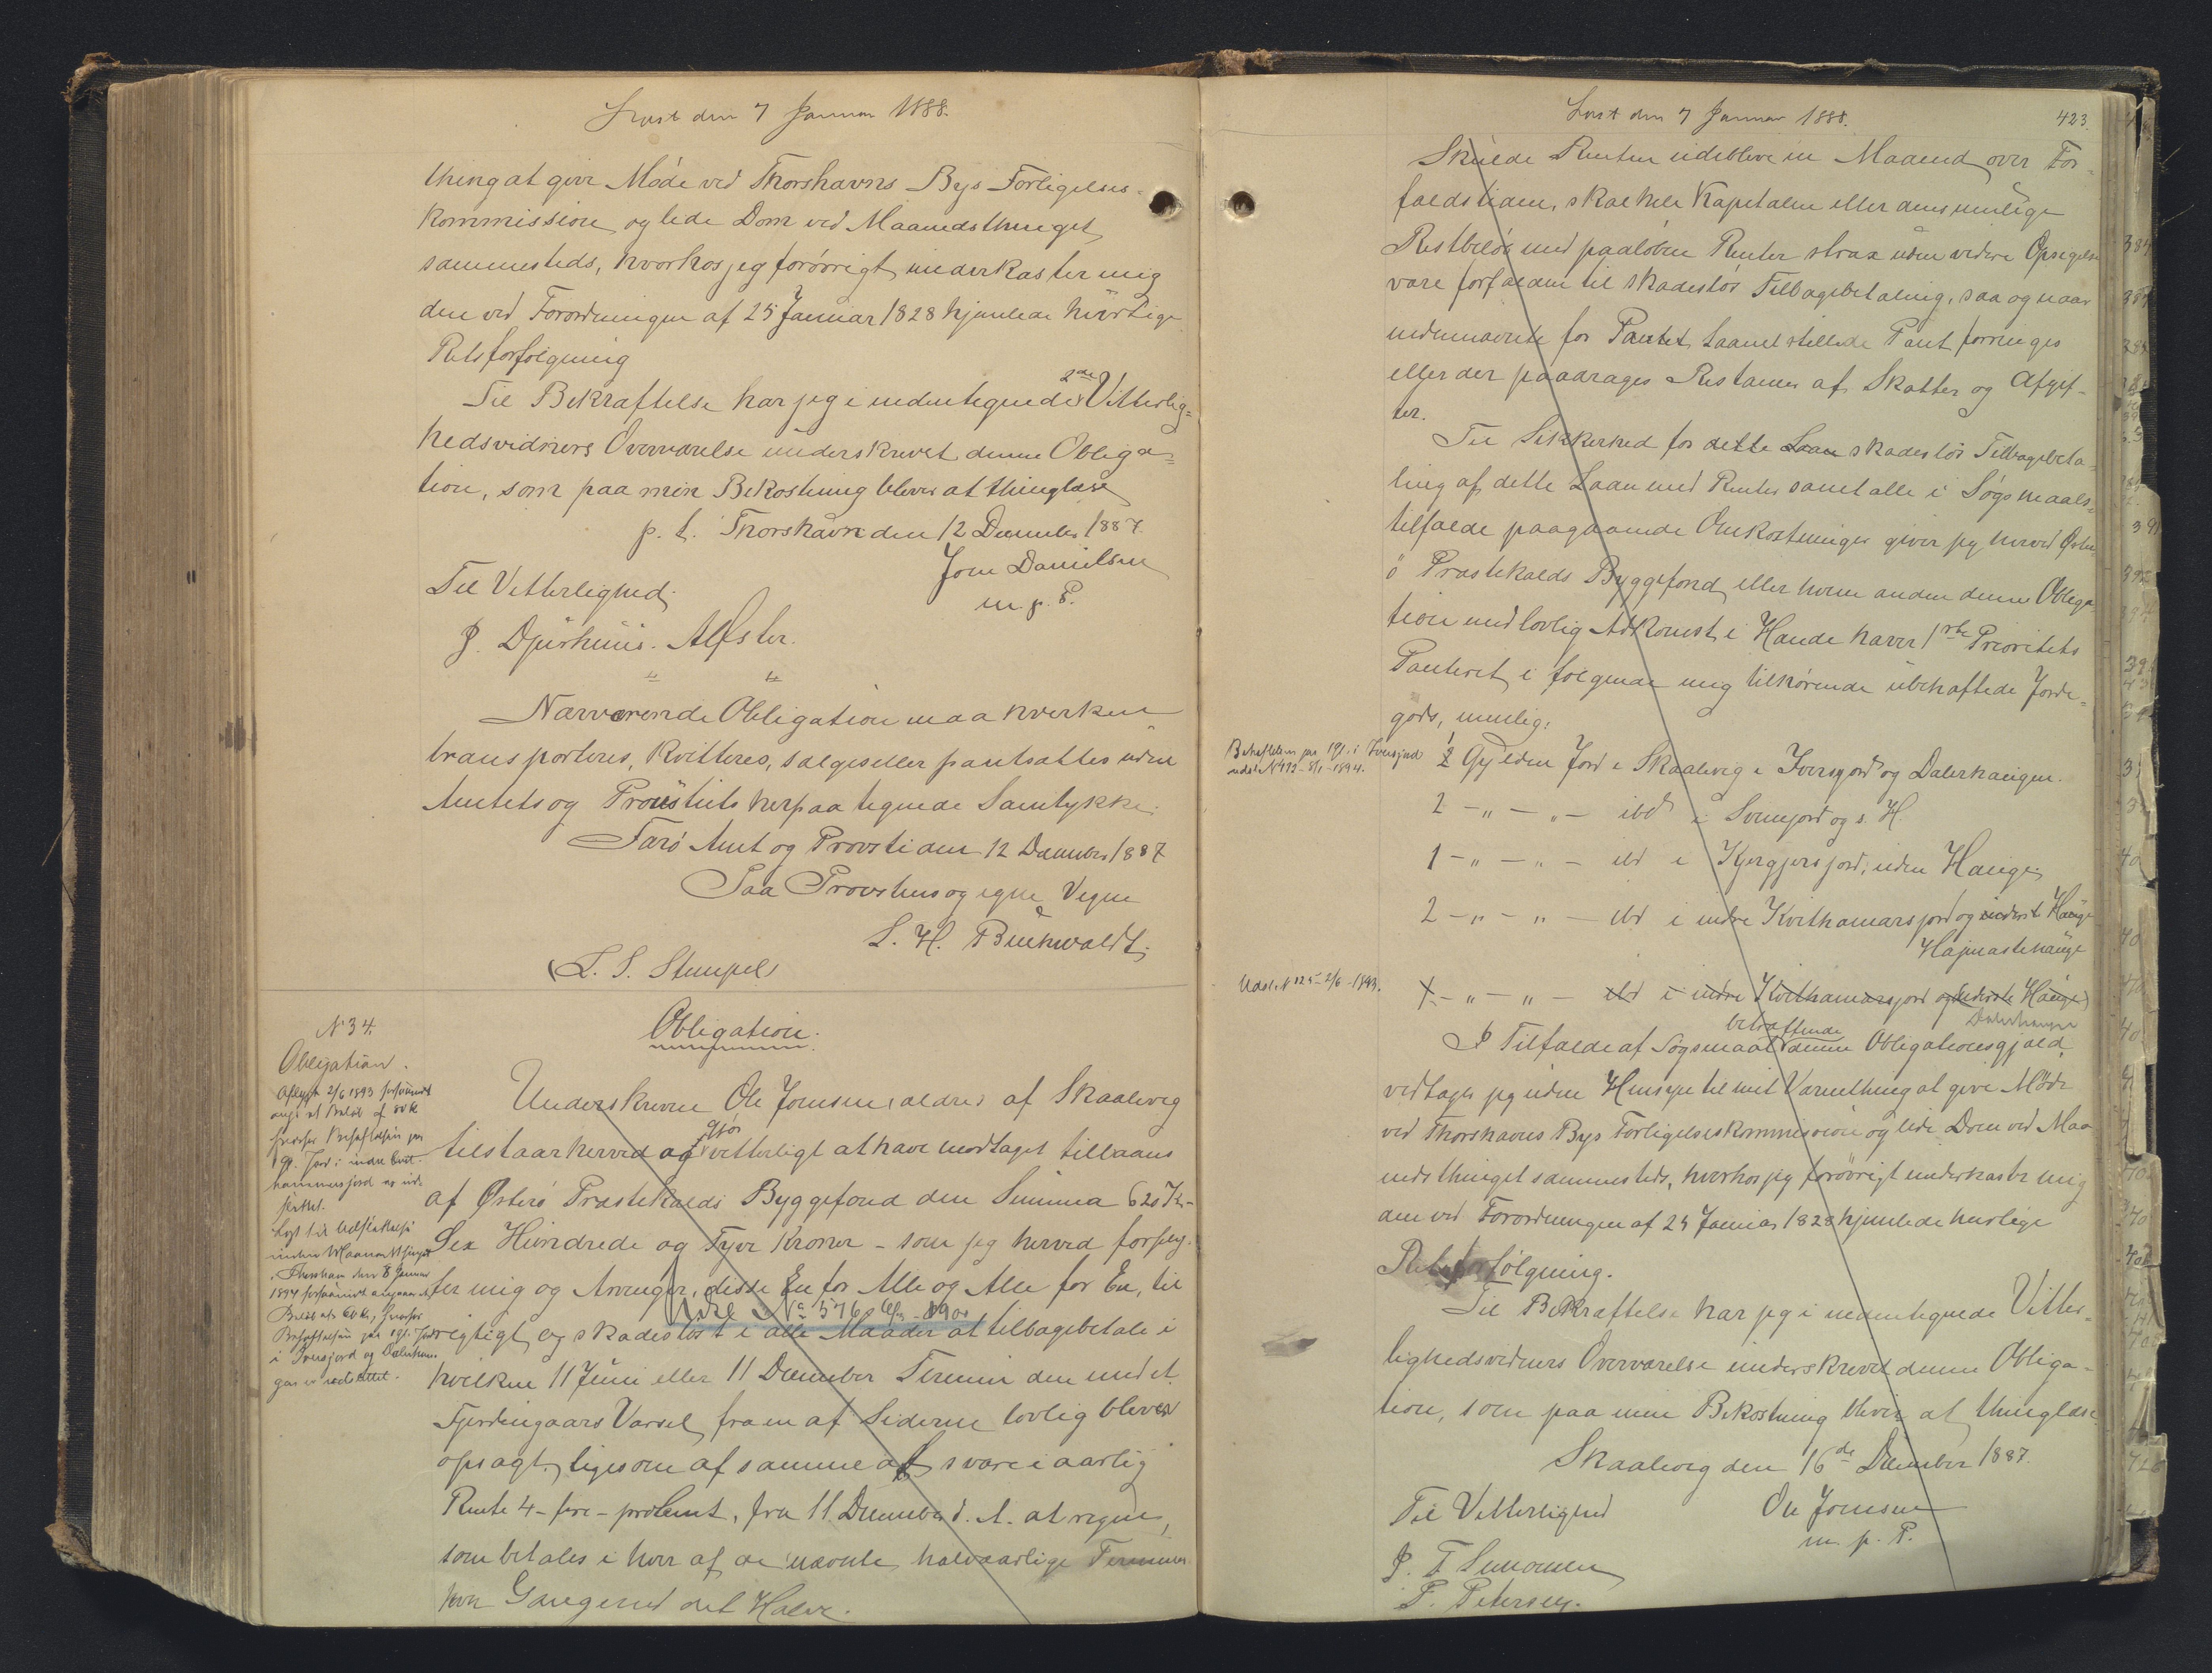 Læst den 7 Januar 1888.
thing at give Møde ved Thorshavns Bys Forligelses-
kommission og lide Dom ved Maanedsthinget
sammesteds, hvorhos jeg forøvrigt underkaster mig
den ved Forordningen af 25 Januar 1828 hjemlede hurtige
Retsforfølgning
Til Bekræftelse har jeg i undertegnede 2de Vitterlig=
hedsvidners Overværelse underskrevet denne Obliga=
tion, som paa min Bekostning bliver at thinglæse
p. t. Thorshavn den 12 December 1887.
Joen Danielsen
m. p. P.
Til Vitterlighed
J. Djurhuus. Alfster.
Nærværende Obligation maa hverken
transporteres, kvitteres, sælges eller pantsættes uden
Amtets og Provstiets herpaa tegnede Samtykke.
Færø Amt og Provsti den 12 December 1887
Paa Provstens og egne Vegne
L. H. Buchwaldt.
(L. S. Stempel)
N 34.
Obligation.
Aflyst 2/6 1893 forsaavidt
ang. et Beløb af 80 Kr
hvorfor Behæftelsen paa
1 gl. Jord i indre Kvit-
hammersjord er ud-
slettet.
Lyst til Udslettelse
inden Maanedsthinget
i Thorshavn den 8 Januar
1894 forsaavidt angaar et
Beløb af 60 Kr, hvorfor
Behæftelsen paa 1 gl. Jord
i Iversjord og Dalerhau-
gen er udslettet.
Obligation.
Underskrevne Ole Joensen ældre af Skaalevig
tilstaar herved og gjør vitterligt at have modtaget tillaans
af Østerø Præstekalds Byggefond den Summa 620 Kr-
Sex Hundrede og Tyve Kroner - som jeg herved forplig-
ter mig og Arvinger, disse En for Alle og Alle for En, til
Udsl. No 576 1900
rigtigt og skadesløst i alle Maader at tilbagebetale i
hvilken 11 Juni eller 11 December Termin den med et
Fjerdingaars Varsel fra en af Siderne lovlig bliver
opsagt, ligesom af samme at svare i aarlig
Rente 4 - fire - procent, fra 11. December d. A. at regne,
som betales i hver af de nævnte halvaarlige Terminer
hver Gang med det Halve.
Læst den 7 Januar 1888.
423.
Skulde Renten udeblive en Maaned over For-
faldstiden, skal hele Kapitalen eller dens mulige
Restbeløb med paaløbne Renter strax uden videre Opsigelse
være forfalden til skadesløs Tilbagebetaling, saa og naar
nedennævnte for Pantet Laanet stillede Pant forringes
eller der paadrages Restancer af Skatter og Afgif-
ter.
Til Sikkerhed for dette Laan skadesløs Tilbagebeta-
ling af dette Laan med Renter samt alle i Søgsmaals-
tilfælde paagaaende Omkostninger giver jeg herved Øster-
ø Præstekalds Byggefond eller hvem anden denne Obliga-
tion med lovlig Adkomst i Hænde haver 1ste Prioritets
Panteret i følgende mig tilhørende ubehæftede Jorde-
gods, nemlig:
Behæftelsen paa 1 gl. i Iversjord
udsl. N 492 - 8/1 - 1894.
2 Gylden Jord i Skaalevig i Iversjord og Dalerhaugen.
2 - " - " - ibd i Svenejord og s. H.
1 - " - " - ibd i Kjergjersjord, uden Hauge
2 - " - " - ibd i indre Kvithamarsjord og inderste Hauge
Højmastehauge
Udsl. N 125 - 2/6 - 1893.
1 - " - " - ibd i indre Kvithamarsjord og nederste Hauge
Dalerhaugen
I Tilfælde af Søgsmaal betræffende denne Obligationsgjæld,
vedtager jeg uden Hensyn til mit Værnething at give Møde
ved Thorshavns Bys Forligelseskommission og lide Dom ved Maa-
nedsthinget sammesteds, hvorhos jeg forøvrigt underkaster mig
den ved Forordningen af 25 Januar 1828 hjemlede hurtige
Retsforfølgning.
Til Bekræftelse har jeg i undertegnede Vitter-
lighedsvidners Overværelse underskrevet denne Obliga-
tion, som paa min Bekostning bliver at thinglæse
Skaalevig den 16de December 1887.
Til Vitterlighed
Ole Joensen
m. p. P.
J. F. Simonsen
P. Petersen.